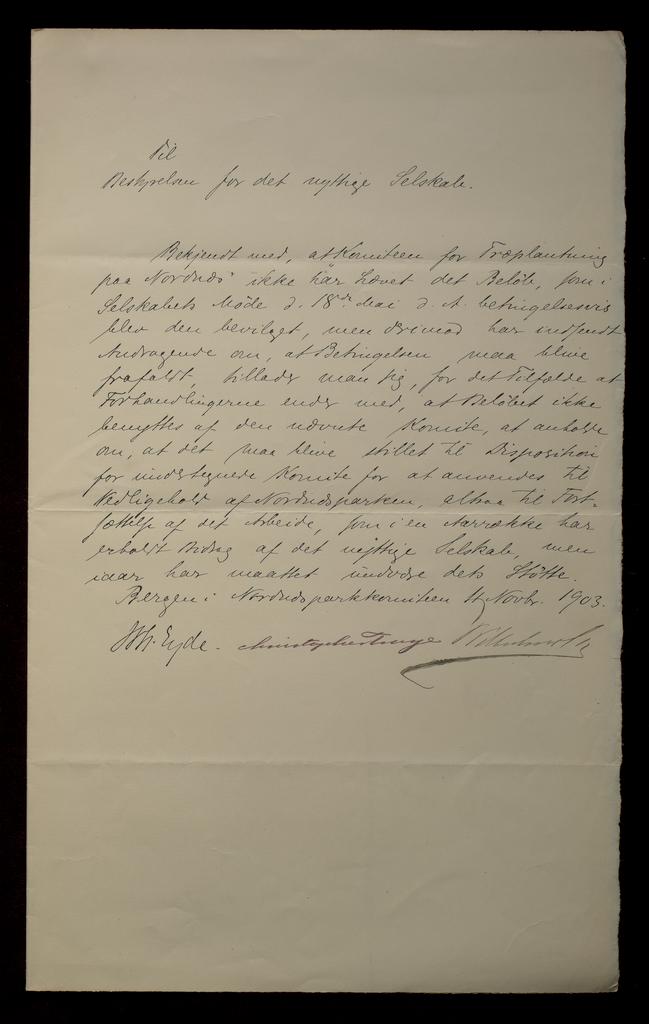 Til
Bestyrelsen for det nyttige Selskab.
Bekjendt med, at Komiteen for Træplantning
paa Nordnæs ikke har hævet det Beløb, som i
Selskabets Møde d. 18de Mai d. A. betingelsesvis
blev den bevilget, men derimod har indsendt
Andragende om, at Betingelsen maa blive
frafaldt, tillader man sig, for det Tilfælde at
Forhandlingerne ender med, at Beløbet ikke
benyttes af den nævnte Komite, at anholde
om, at det maa blive stillet til Disposition
for undertegnede Komite for at anvendes til
Vedligehold af Nordnæsparken, altsaa til Fort-
sættelse af det Arbeide, som i en Aarrække har
erholdt Bidrag af det nyttige Selskab, men
iaar har maattet undvære dets Støtte.
Bergen i Nordnæsparkkomiteen 4 Novbr. 1903.
Eyde.